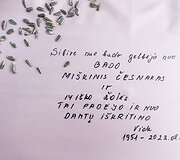 Sibire nuo bado gelbėjo nuo
BADO
MIŠKINIS ČESNAKAS
IR
miško žolės
TAI PADĖJO IR NUO
DANTŲ IŠKRITIMO
1951 - 2022.08.